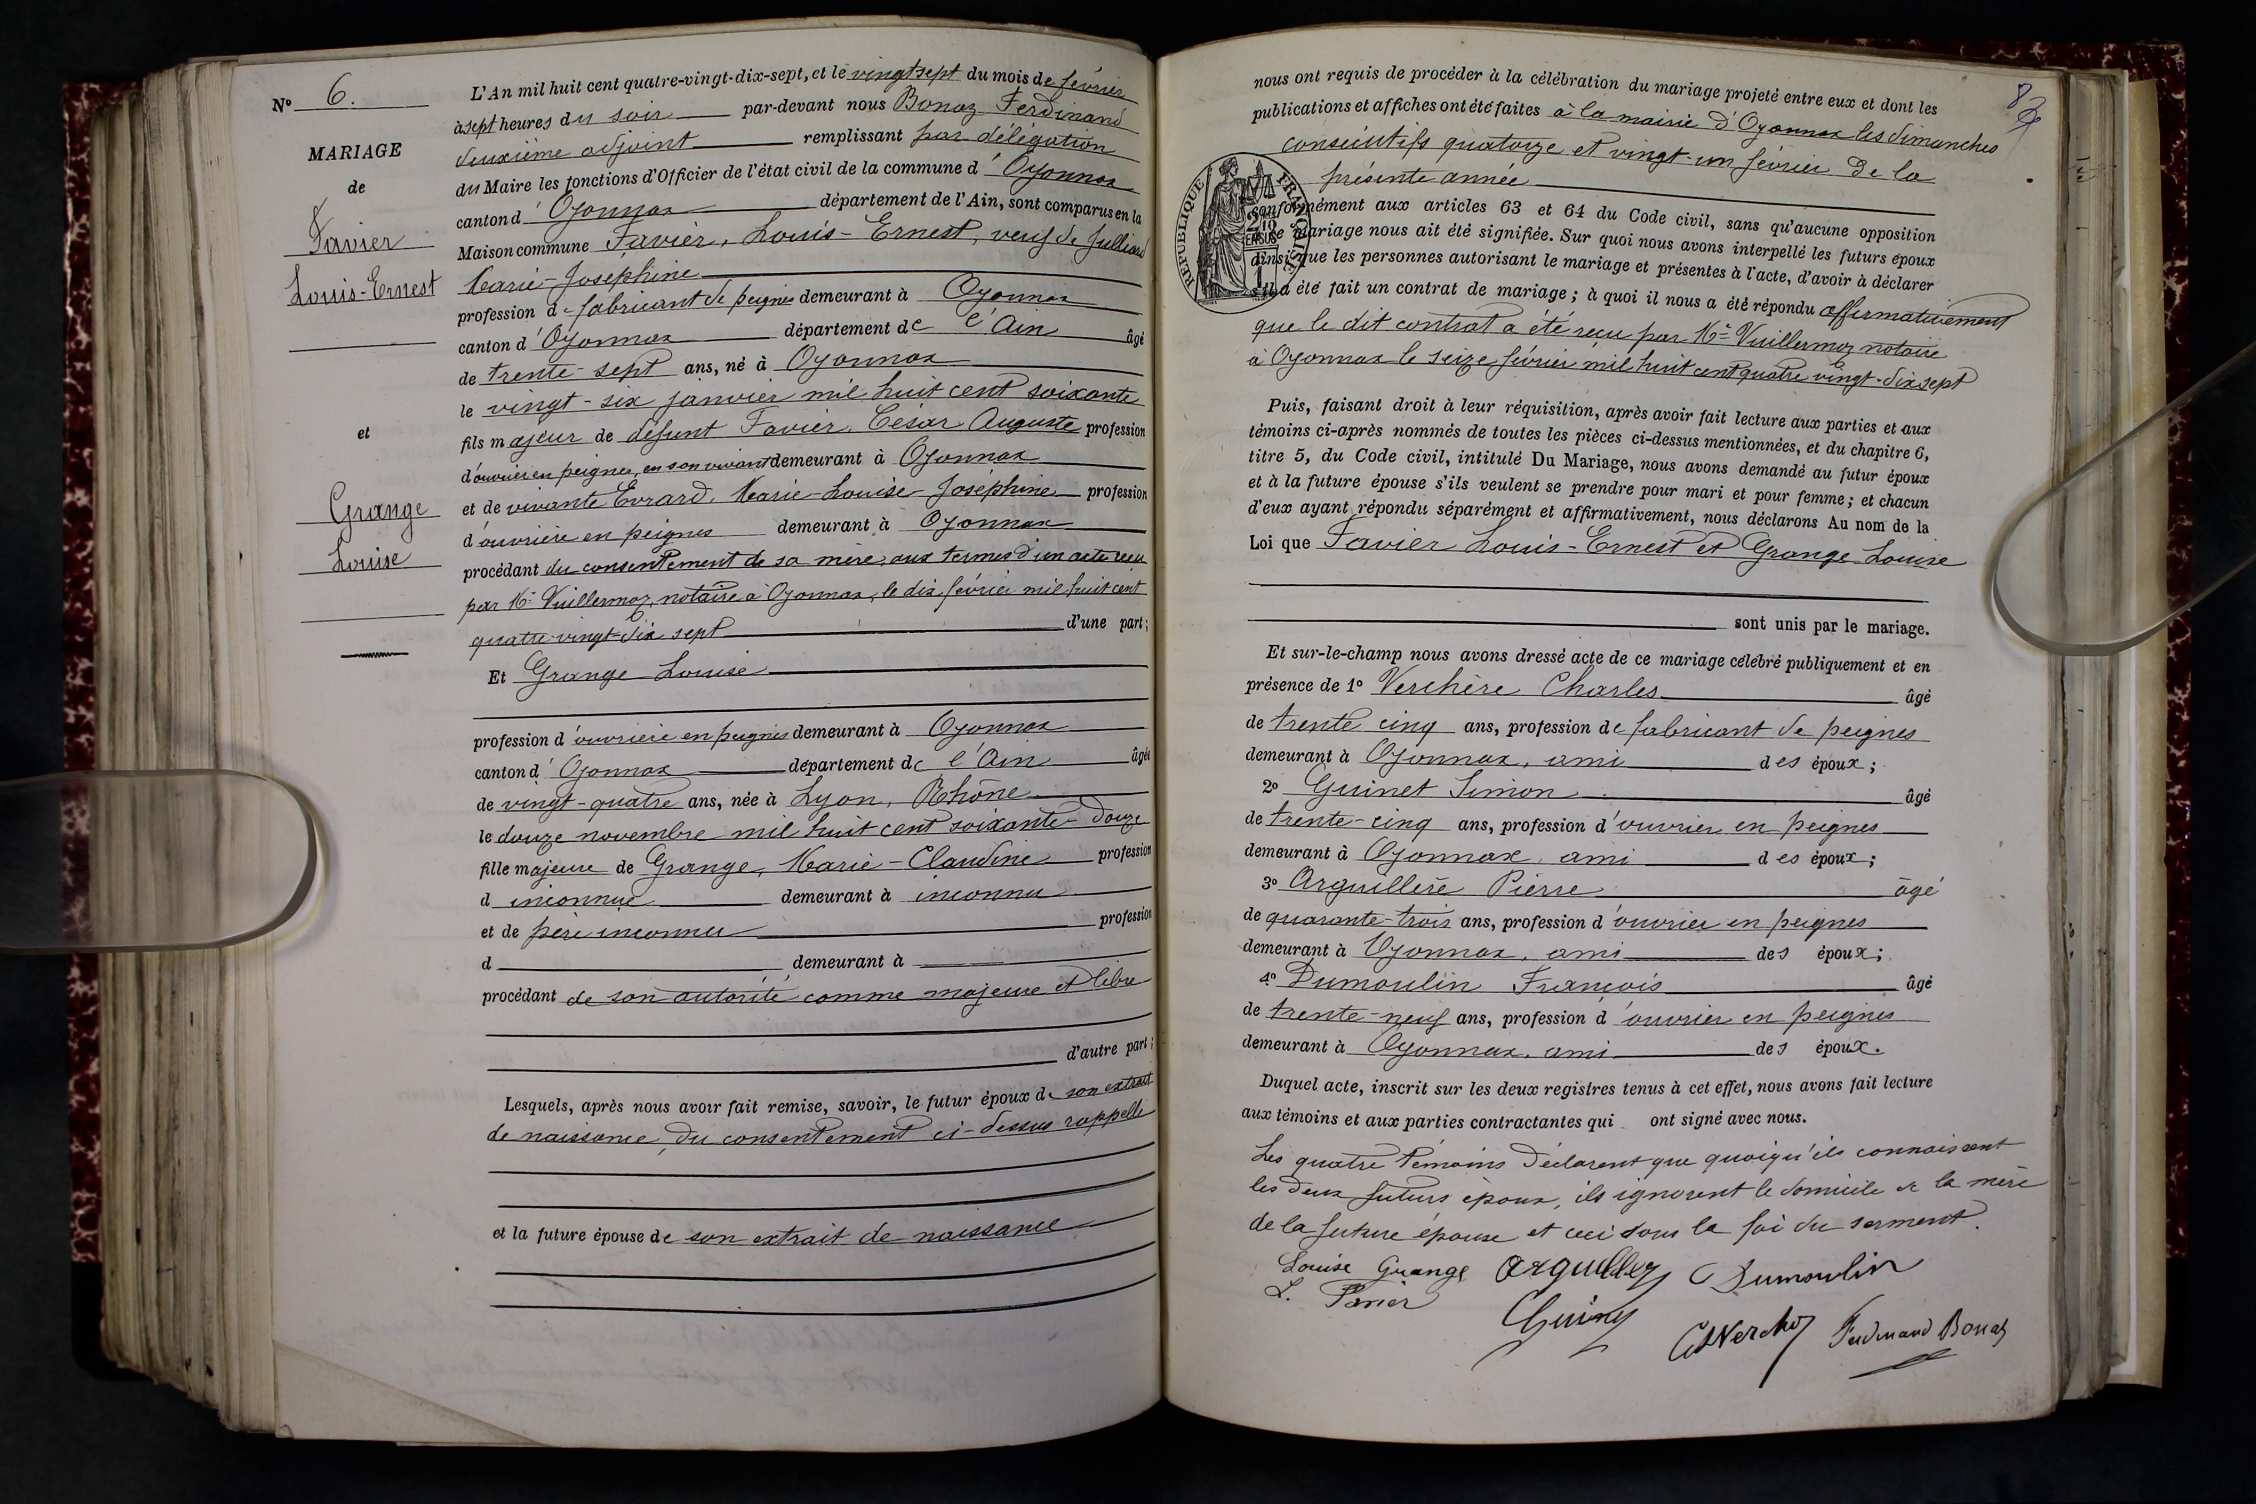 N° 6.
MARIAGE
de
Favier
Louis-Ernest
et
Grange
Louise
L'An mil huit cent quatre-vingt-dix-sept, et le vingt sept du mois de février
à sept heures du soir par-devant nous Bonaz Ferdinand
deuxième adjoint remplissant par délégation
du Maire les fonctions d'Officier de l'état civil de la commune d'Oyonnax
canton d'Oyonnax département de l'Ain, sont comparus en la
Maison commune Favier, Louis-Ernest, veuf de Julliard
Marie-Joséphine
profession de fabricant de peignes demeurant à Oyonnax
canton d'Oyonnax département de l'Ain âgé
de trente-sept ans, né à Oyonnax
le vingt-six janvier mil huit cent soixante
fils majeur de défunt Favier, César Auguste profession
d'ouvrier en peignes, en son vivant demeurant à Oyonnax
et de vivante Evrard, Marie-Louise-Joséphine profession
d'ouvrière en peignes demeurant à Oyonnax
procédant du consentement de sa mère, aux termes d'un acte reçu
par Me Vuillermoz, notaire à Oyonnax, le dix février mil huit cent
quatre-vingt-dix sept d'une part;
Et Grange Louise
profession d'ouvrière en peignes demeurant à Oyonnax
canton d'Oyonnax département de l'Ain âgée
de vingt-quatre ans, née à Lyon, Rhône
le douze novembre mil huit cent soixante-douze
fille majeure de Grange, Marie-Claudine profession
d inconnue demeurant à inconnu
et de père inconnu profession
d demeurant à
procédant de son autorité comme majeure et libre
d'autre part;
Lesquels, après nous avoir fait remise, savoir, le futur époux de son extrait
de naissance, du consentement ci-dessus rappelé
et la future épouse de son extrait de naissance
82
nous ont requis de procéder à la célébration du mariage projeté entre eux et dont les
publications et affiches ont été faites à la mairie d'Oyonnax les dimanches
consécutifs quatorze et vingt-un février de la
présente année
RÉPUBLIQUE FRANÇAISE
conformément aux articles 63 et 64 du Code civil, sans qu'aucune opposition
à ce mariage nous ait été signifiée. Sur quoi nous avons interpellé les futurs époux
ainsi que les personnes autorisant le mariage et présentes à l'acte, d'avoir à déclarer
s'il a été fait un contrat de mariage; à quoi il nous a été répondu affirmativement
que le dit contrat a été reçu par Me Vuillermoz notaire
à Oyonnax le seize février mil huit cent quatre vingt-dix sept
Puis, faisant droit à leur réquisition, après avoir fait lecture aux parties et aux
témoins ci-après nommés de toutes les pièces ci-dessus mentionnées, et du chapitre 6,
titre 5, du Code civil, intitulé Du Mariage, nous avons demandé au futur époux
et à la future épouse s'ils veulent se prendre pour mari et pour femme; et chacun
d'eux ayant répondu séparément et affirmativement, nous déclarons Au nom de la
Loi que Favier Louis-Ernest et Grange Louise
sont unis par le mariage.
Et sur-le-champ nous avons dressé acte de ce mariage célébré publiquement et en
présence de 1° Verchère Charles âgé
de trente cinq ans, profession de fabricant de peignes
demeurant à Oyonnax, ami des époux;
2° Guinet Simon âgé
de trente-cinq ans, profession d'ouvrier en peignes
demeurant à Oyonnax, ami des époux;
3° Arguillère Pierre âgé
de quarante-trois ans, profession d'ouvrier en peignes
demeurant à Oyonnax, ami des époux;
4° Dumoulin François âgé
de trente-neuf ans, profession d'ouvrier en peignes
demeurant à Oyonnax, ami des époux.
Duquel acte, inscrit sur les deux registres tenus à cet effet, nous avons fait lecture
aux témoins et aux parties contractantes qui ont signé avec nous.
Les quatre témoins déclarent que quoiqu'ils connaissent
les deux futurs époux, ils ignorent le domicile de la mère
de la future épouse et ceci sous la foi du serment.
Louise Grange Arguiller Dumoulin
L. Favier
Guinet
Ch Verchère Ferdinand Bonaz